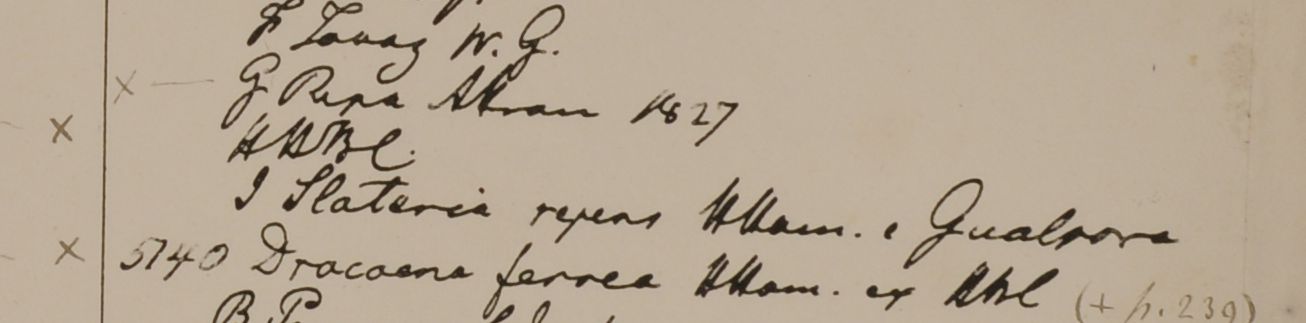 F Tavoy W. G.
× G Ripa Attran 1827
× H HBC.
I Slateria repens HHam. e Gualpara
× 5140 Dracaena ferrea HHam. ex HBC (+ p. 239)
B